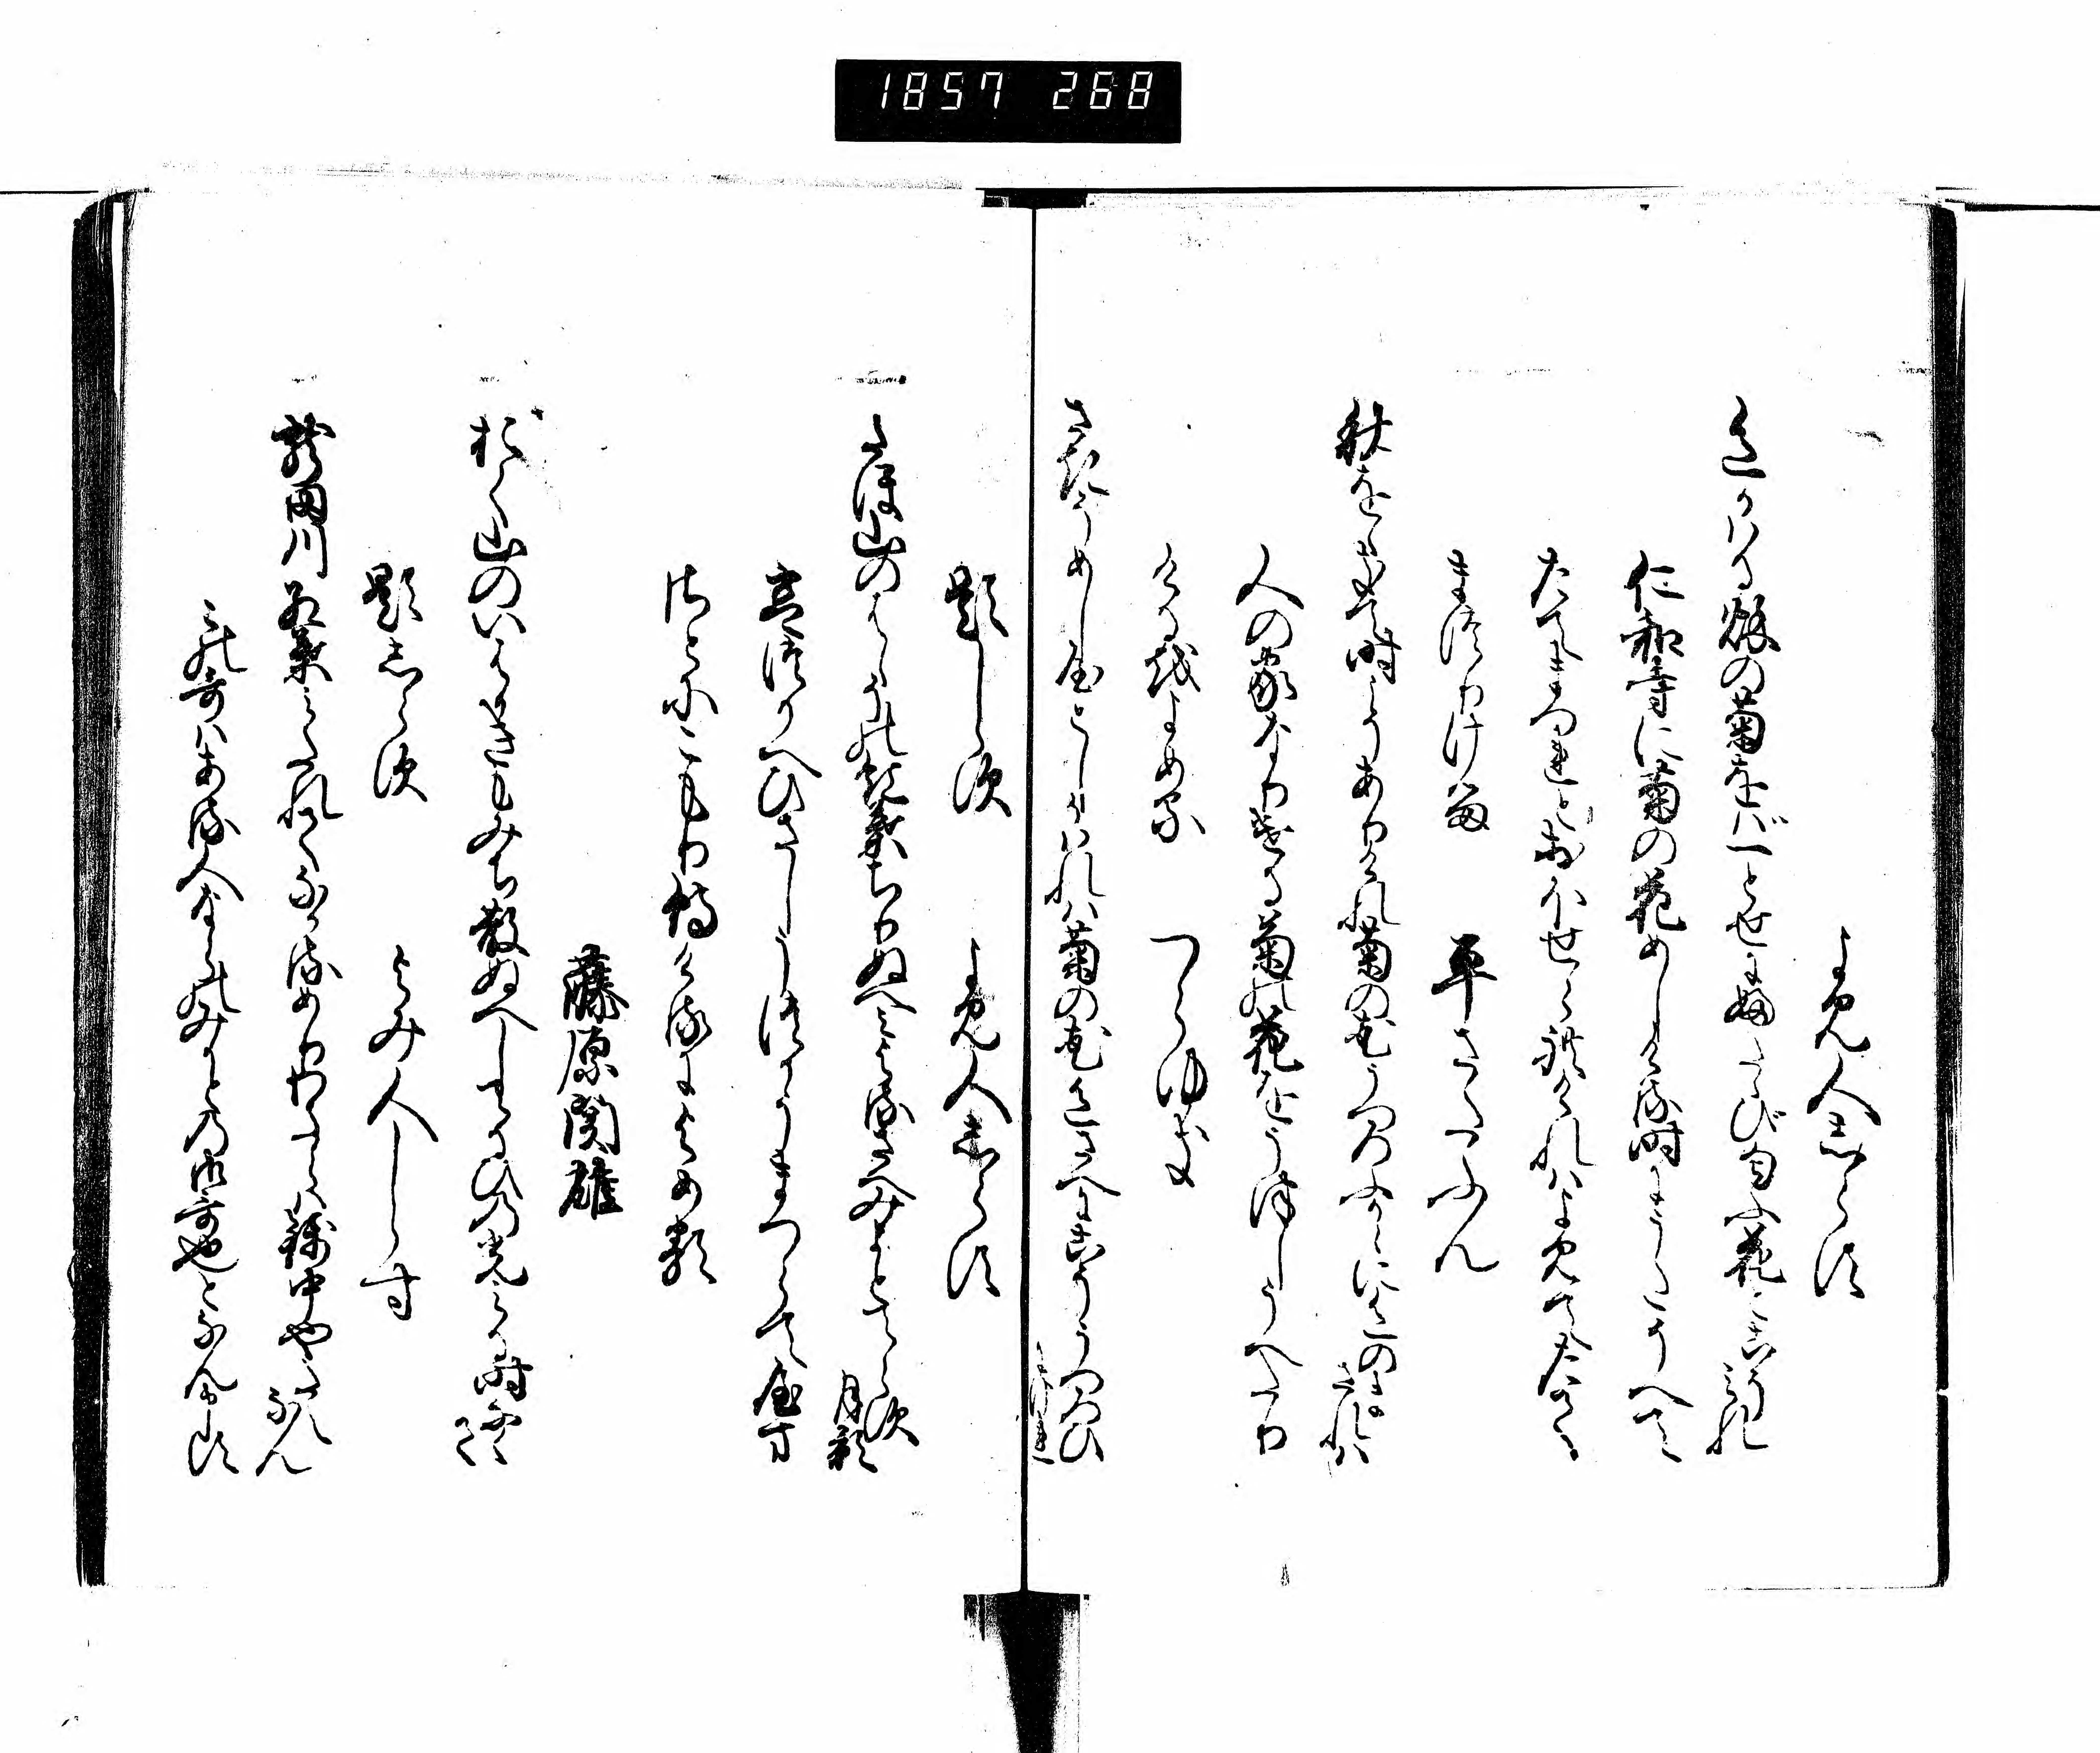 1857 268
よみ人しらす
色かはる秋の菊をば一とせにふたゝび匂ふ花とこそみれ
仁和寺に菊の花めしける時にうたそへて
たてまつれとおほせられけれはよみてたてまつりける
平さたふん
秋をおきて時こそありけれ菊の花うつろふからに色のまされは
人の家なりける菊の花をうつしうへたり
けるをよめる
つらゆき
さきそめし屋としかはれは菊の花色さへにこそうつろひにけれ
題しらす
よみ人しらす
さほ山のはゝその紅葉ちりぬへみよるさへみよとてらす月影
宮つかへひさしうつかうまつらて
山さとにこもり侍けるによめる
藤原関雄
おく山のいはかきもみち散ぬへしてるひの光みる時なくて
題しらす
よみ人しらす
龍田川紅葉みたれてなかるめりわたらは錦中やたえなん
この哥はある人ならのみかとの御哥也となん申す